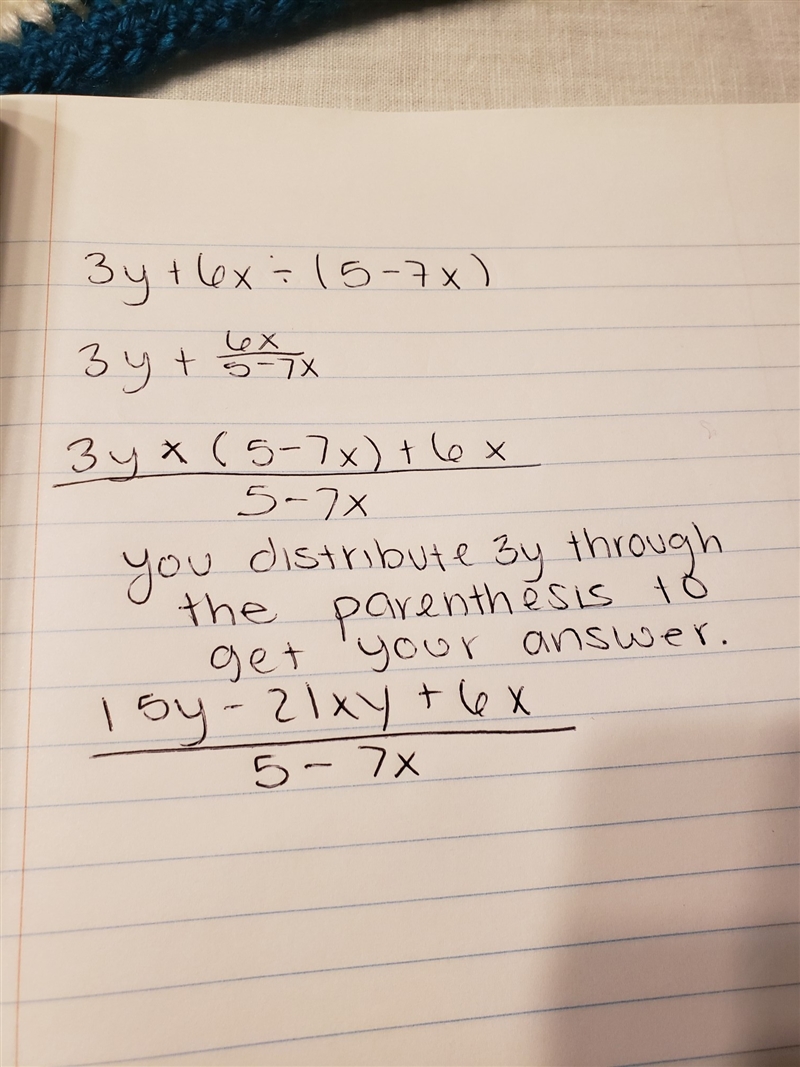 3y + 6x ÷ (5 - 7x)
3y + 6x/5-7x
3y x (5 - 7x) + 6x
5 - 7x
you distribute 3y through
the parenthesis to
get your answer.
15y - 21xy + 6x
5 - 7x